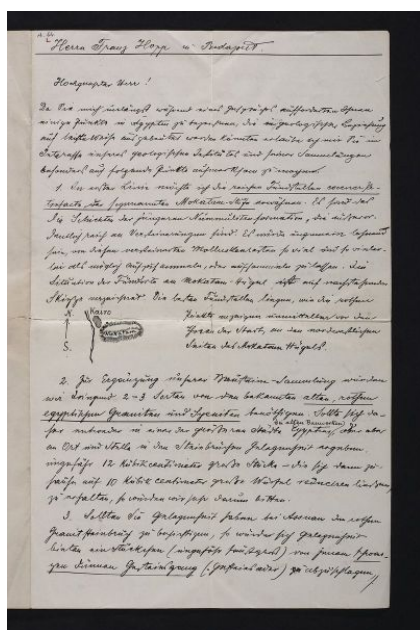 Herrn Franz Hopp in Budapest.
Hochgeehrter Herr!
Da Sie mich unlängst während eines Gespräches aufforderten Ihnen
einige Punkte in Ägypten zu bezeichnen, die in geologischer Beziehung
auf ausgebeutet werden könnten erlaube ich mir Sie im
Interesse unseres geologischen Institutes und seiner Sammlungen
besonders auf folgende Punkte aufmerksam zu machen.
1. In erster Linie möchte ich die reichen Fundstellen
des sogenannten Mokatam erwähnen. Es sind das
die Schichten der jüngeren Nummulitenformation, die ausser-
dentlich reich an Versteinerungen sind. Es würde ungemein lohnend
sein, von diesen versteinerten Molluskenarten so viel und so vieler-
lei als möglich aufzusammeln, oder aufsammeln zu lassen. Die
Situation der Fundorte am Mokatam Hügel ist auf nachstehender
Skizze verzeichnet. Die besten Fundstellen liegen, wie die rothen
N. Kairo
Punkte anzeigen unmittelbar vor den
Thoren der Stadt, an den nordwestlichen
S.
Seiten des Mokatam Hügels.
2. Zur Ergänzung unserer Sammlung würden
wir dringend 2-3 Sorten von den bekannten alten, rothen
egyptischen Graniten und Syeniten benöthigen. Sollte sich da-
her entweder in einer der grösseren Städte Egyptens, oder aber
an Ort und Stelle in den Steinbrüchen Gelegenheit ergeben
ungefähr 12 Kubikcentimeter grosse Stücke - die sich dann zu-
auf 10 Kubikcentimeter grosse Würfel liessen,
zu erhalten, so würden wir sehr darum bitten.
3. Sollten Sie Gelegenheit haben bei Assuan den rothen
Granitsteinbruch zu besichtigen, so würde sich Gelegenheit
bieten ein Stückchen (ungefähr faustgross) von jenem
dünnen Gesteinsgang (: Gesteinsader) abzuschlagen,